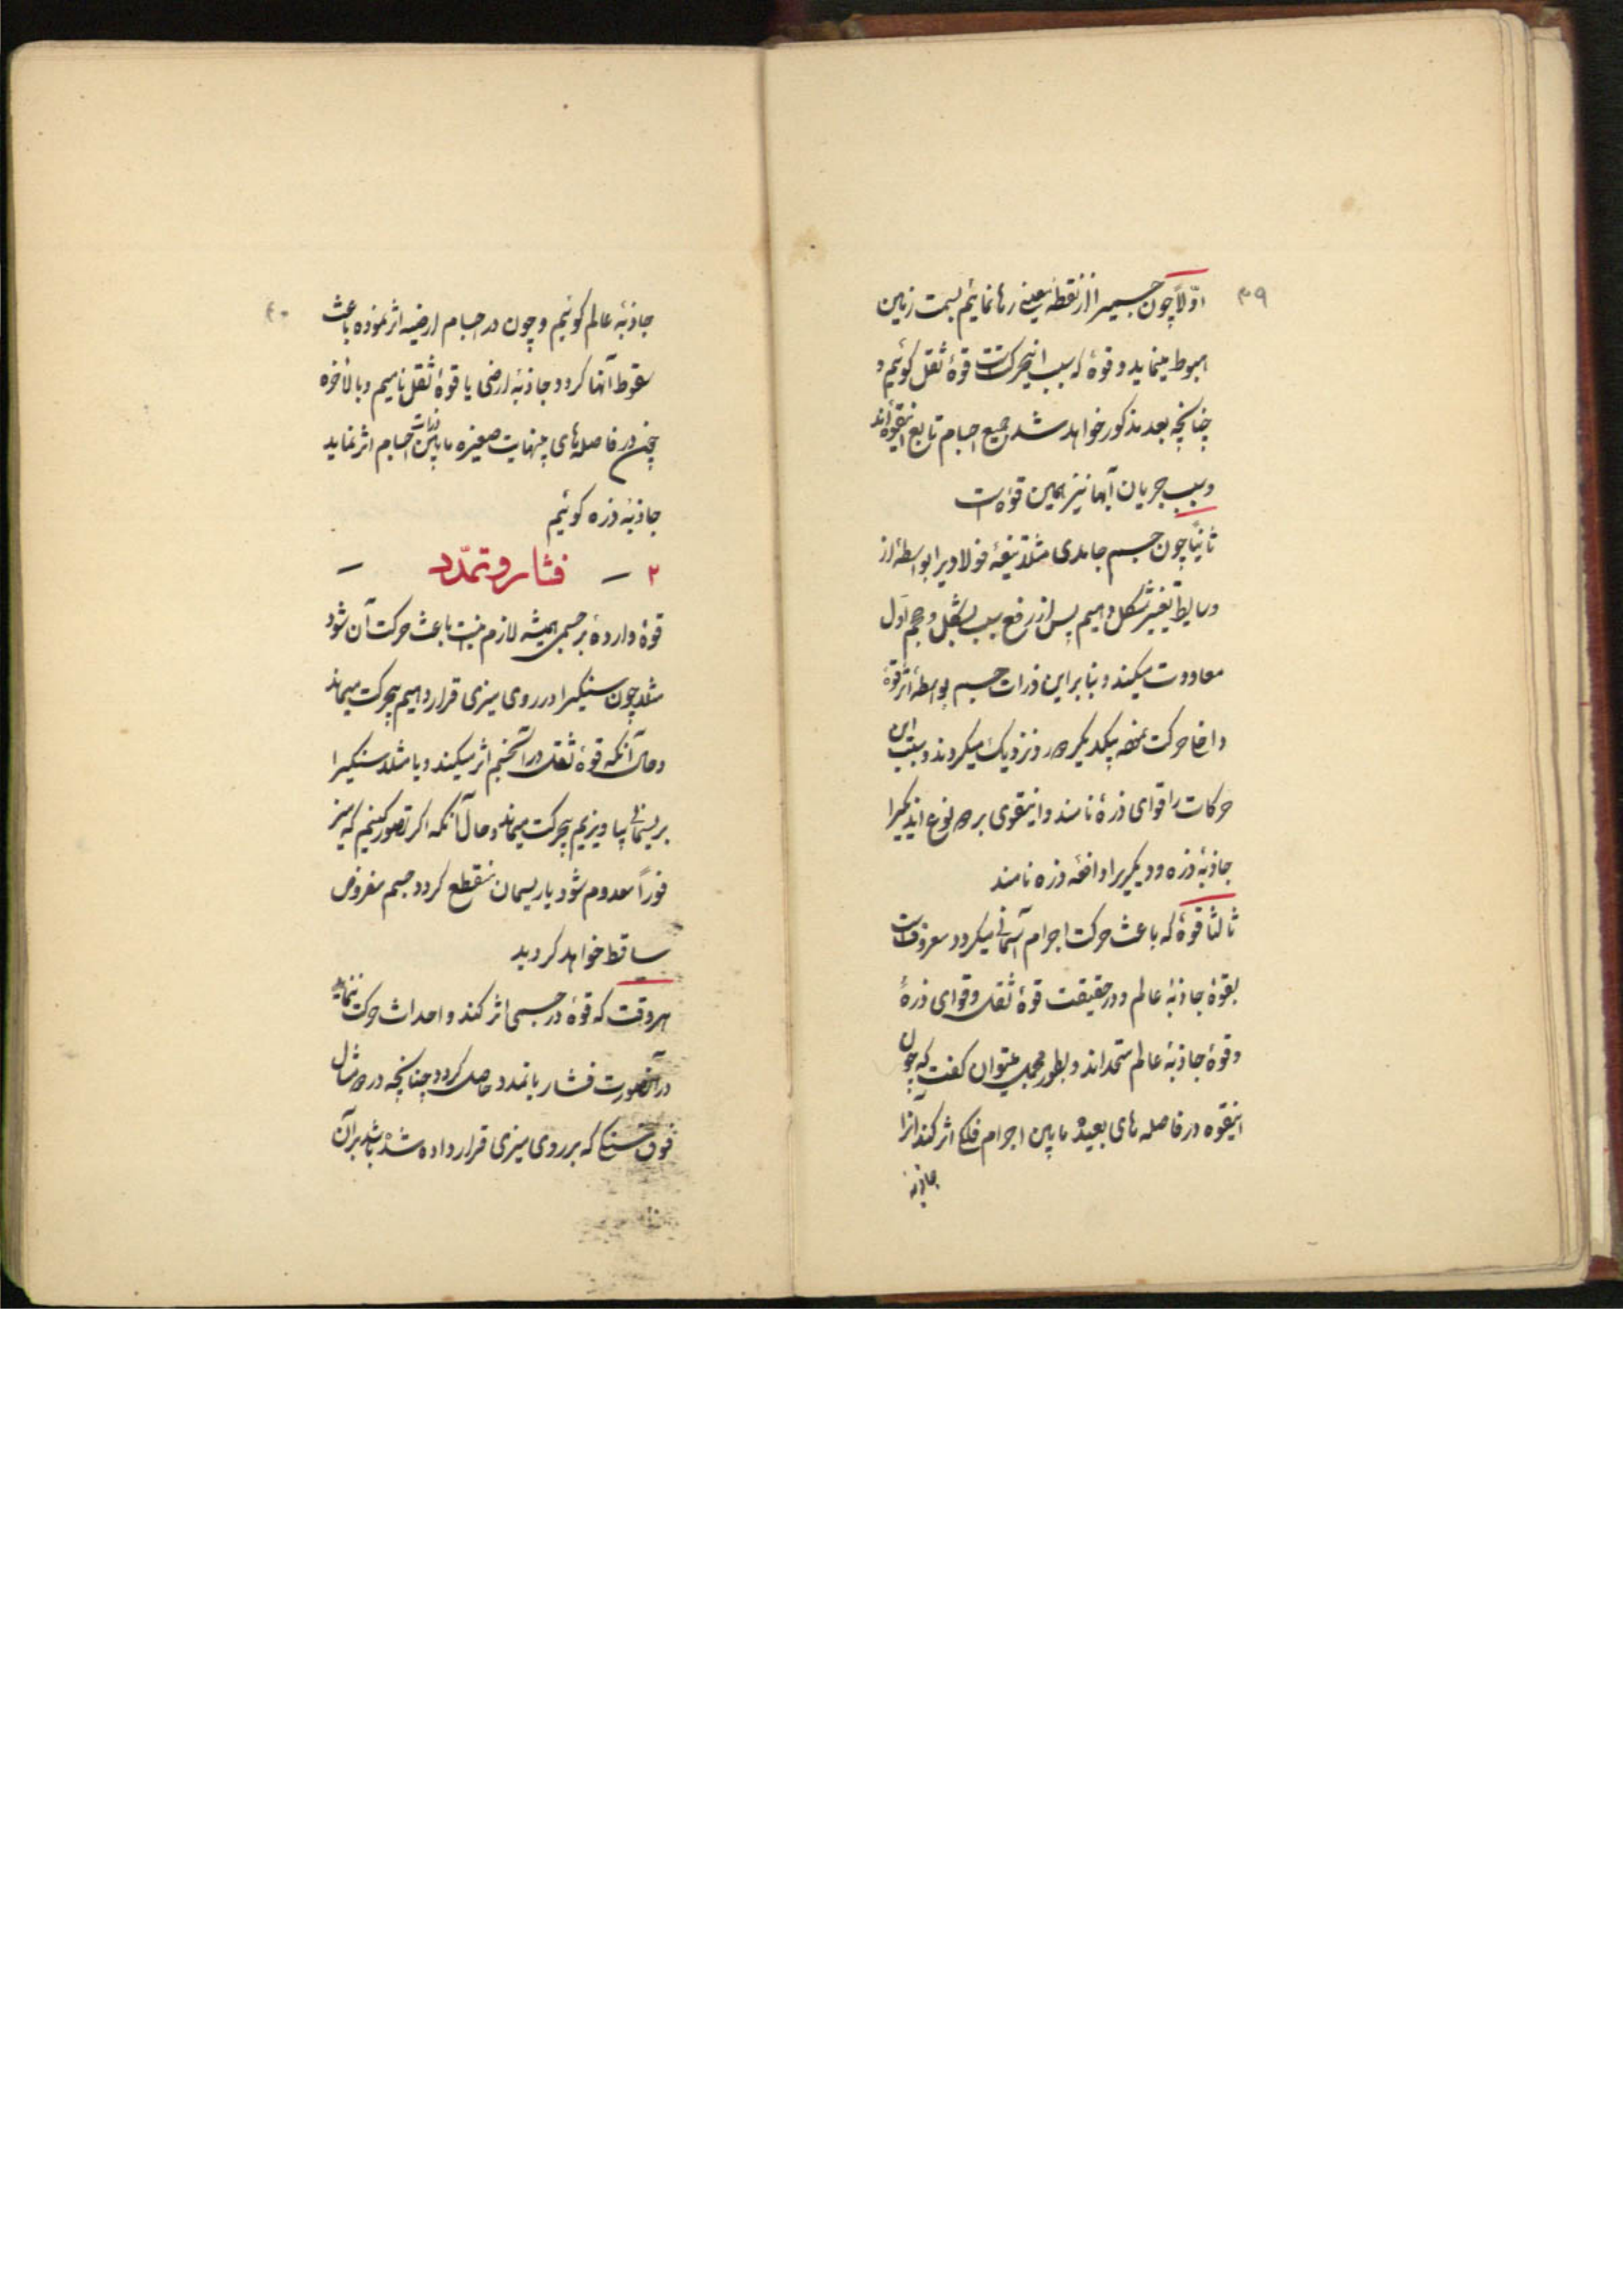 ۳۹
اوّلاً چون جسمیرا از نقطهٔ معینی رها نمائیم بسمت زمین
هبوط مینماید و قوهٔ که سبب اینحرکتست قوهٔ ثقل گوئیم و
چنانچه بعد مذکور خواهد شد جمیع اجسام تابع اینقوه‌اند
و سبب جریان آبها نیز همین قوه است
ثانیاً چون جسم جامدی مثلاً تیغهٔ فولادیرا بواسطهٔ از
وسایط تغییر شکل دهیم پس از رفع سبب بشکل و حجم اول
معاودت میکند و بنابراین ذرات جسم بواسطهٔ اثر قوهٔ
داخله حرکت نموده بیکدیگر دور و نزدیک میگردند و سبب این
حرکات را قوای ذرهٔ نامند و اینقوی بر دو نوع‌اند یکیرا
جاذبهٔ ذره و دیگریرا دافعهٔ ذره نامند
ثالثاً قوهٔ که باعث حرکت اجرام آسمانی میگردد معروفست
بقوهٔ جاذبهٔ عالم و در حقیقت قوهٔ ثقل و قوای ذرهٔ
و قوهٔ جاذبهٔ عالم متحداند و بطور مجمل میتوان گفت که چون
اینقوه در فاصله‌های بعیده مابین اجرام فلکی اثر کند آنرا
جاذبهٔ
۴۰
جاذبهٔ عالم گوئیم و چون در اجسام ارضیه اثر نموده باعث
سقوط آنها گردد جاذبهٔ ارضی یا قوهٔ ثقل نامیم و بالاخره
چون در فاصله‌های بینهایت صغیره مابین ذرات اجسام اثر نماید
جاذبهٔ ذره گوئیم
۲ – فشار و تمدّد –
قوهٔ واردهٔ بر جسمی همیشه لازم نیست باعث حرکت آن شود
مثلا چون سنگیرا در روی میزی قرار دهیم بیحرکت میماند
و حال آنکه قوهٔ ثقل در آنجسم اثر میکند و یا مثلا سنگیرا
بریسمانی بیاویزیم بیحرکت میماند و حال آنکه اگر تصور کنیم که میز
فوراً معدوم شود یا ریسمان منقطع گردد جسم مفروض
ساقط خواهد گردید
هر وقت که قوهٔ در جسمی اثر کند و احداث حرکت ننماید
در آنصورت فشار یا تمدد حاصل گردد چنانچه در دو مثال
فوق سنگی که بر روی میزی قرار داده شده باشد بر آن